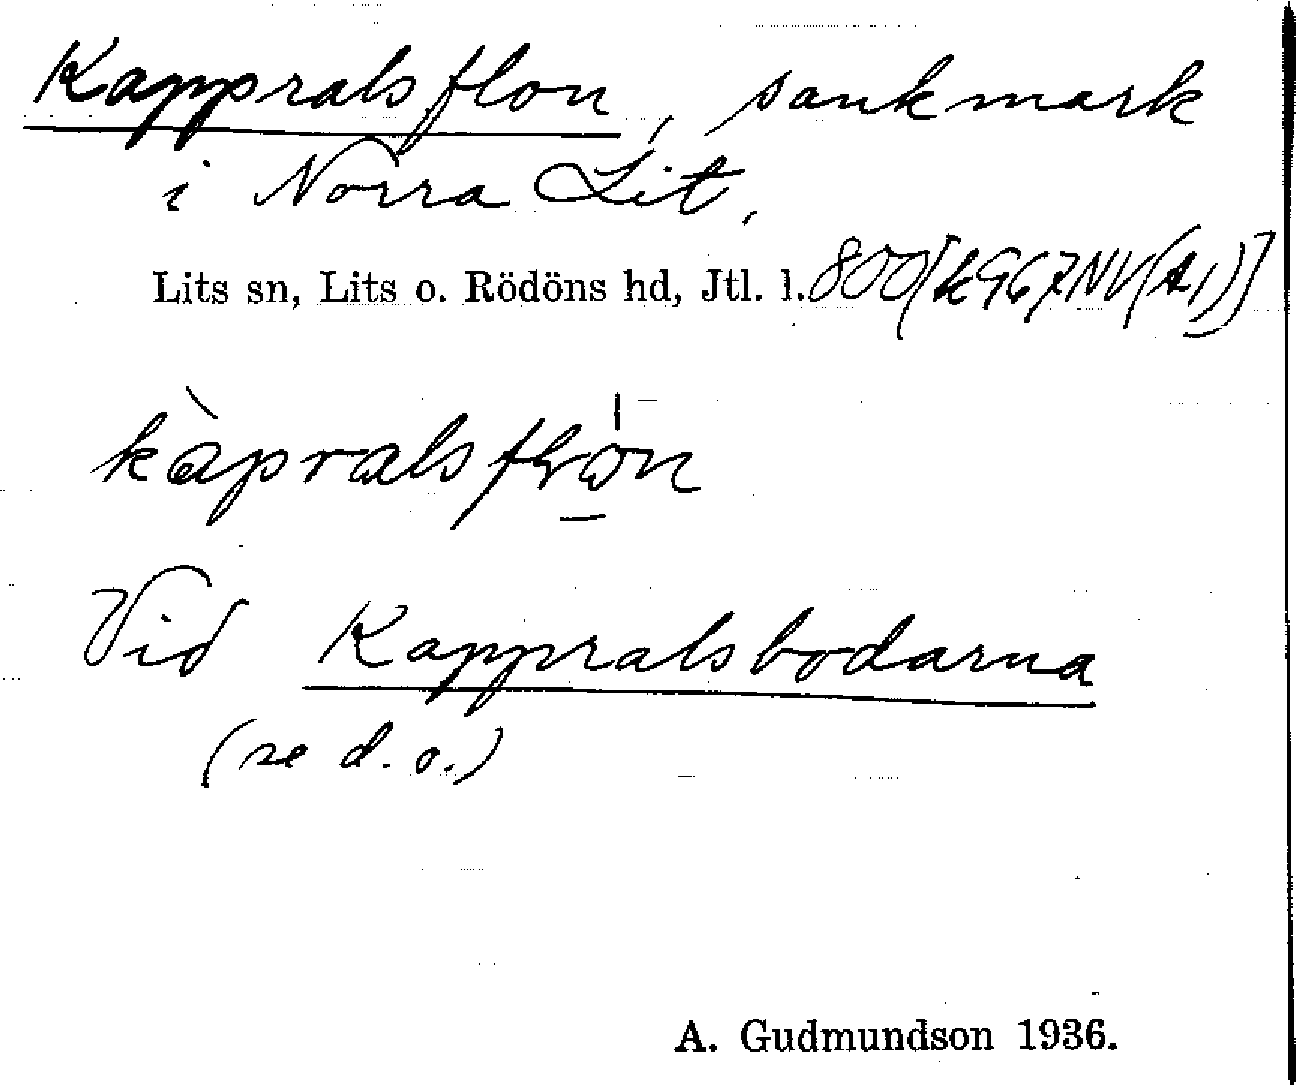 Kappralsflon, sankmark
i Norra Lit,
Lits sn, Lits o. Rödöns hd, Jtl. l. 800 [k967NV(A1)]
Vid Kappralsbodarna
(se d. o.)
A. Gudmundson 1936.